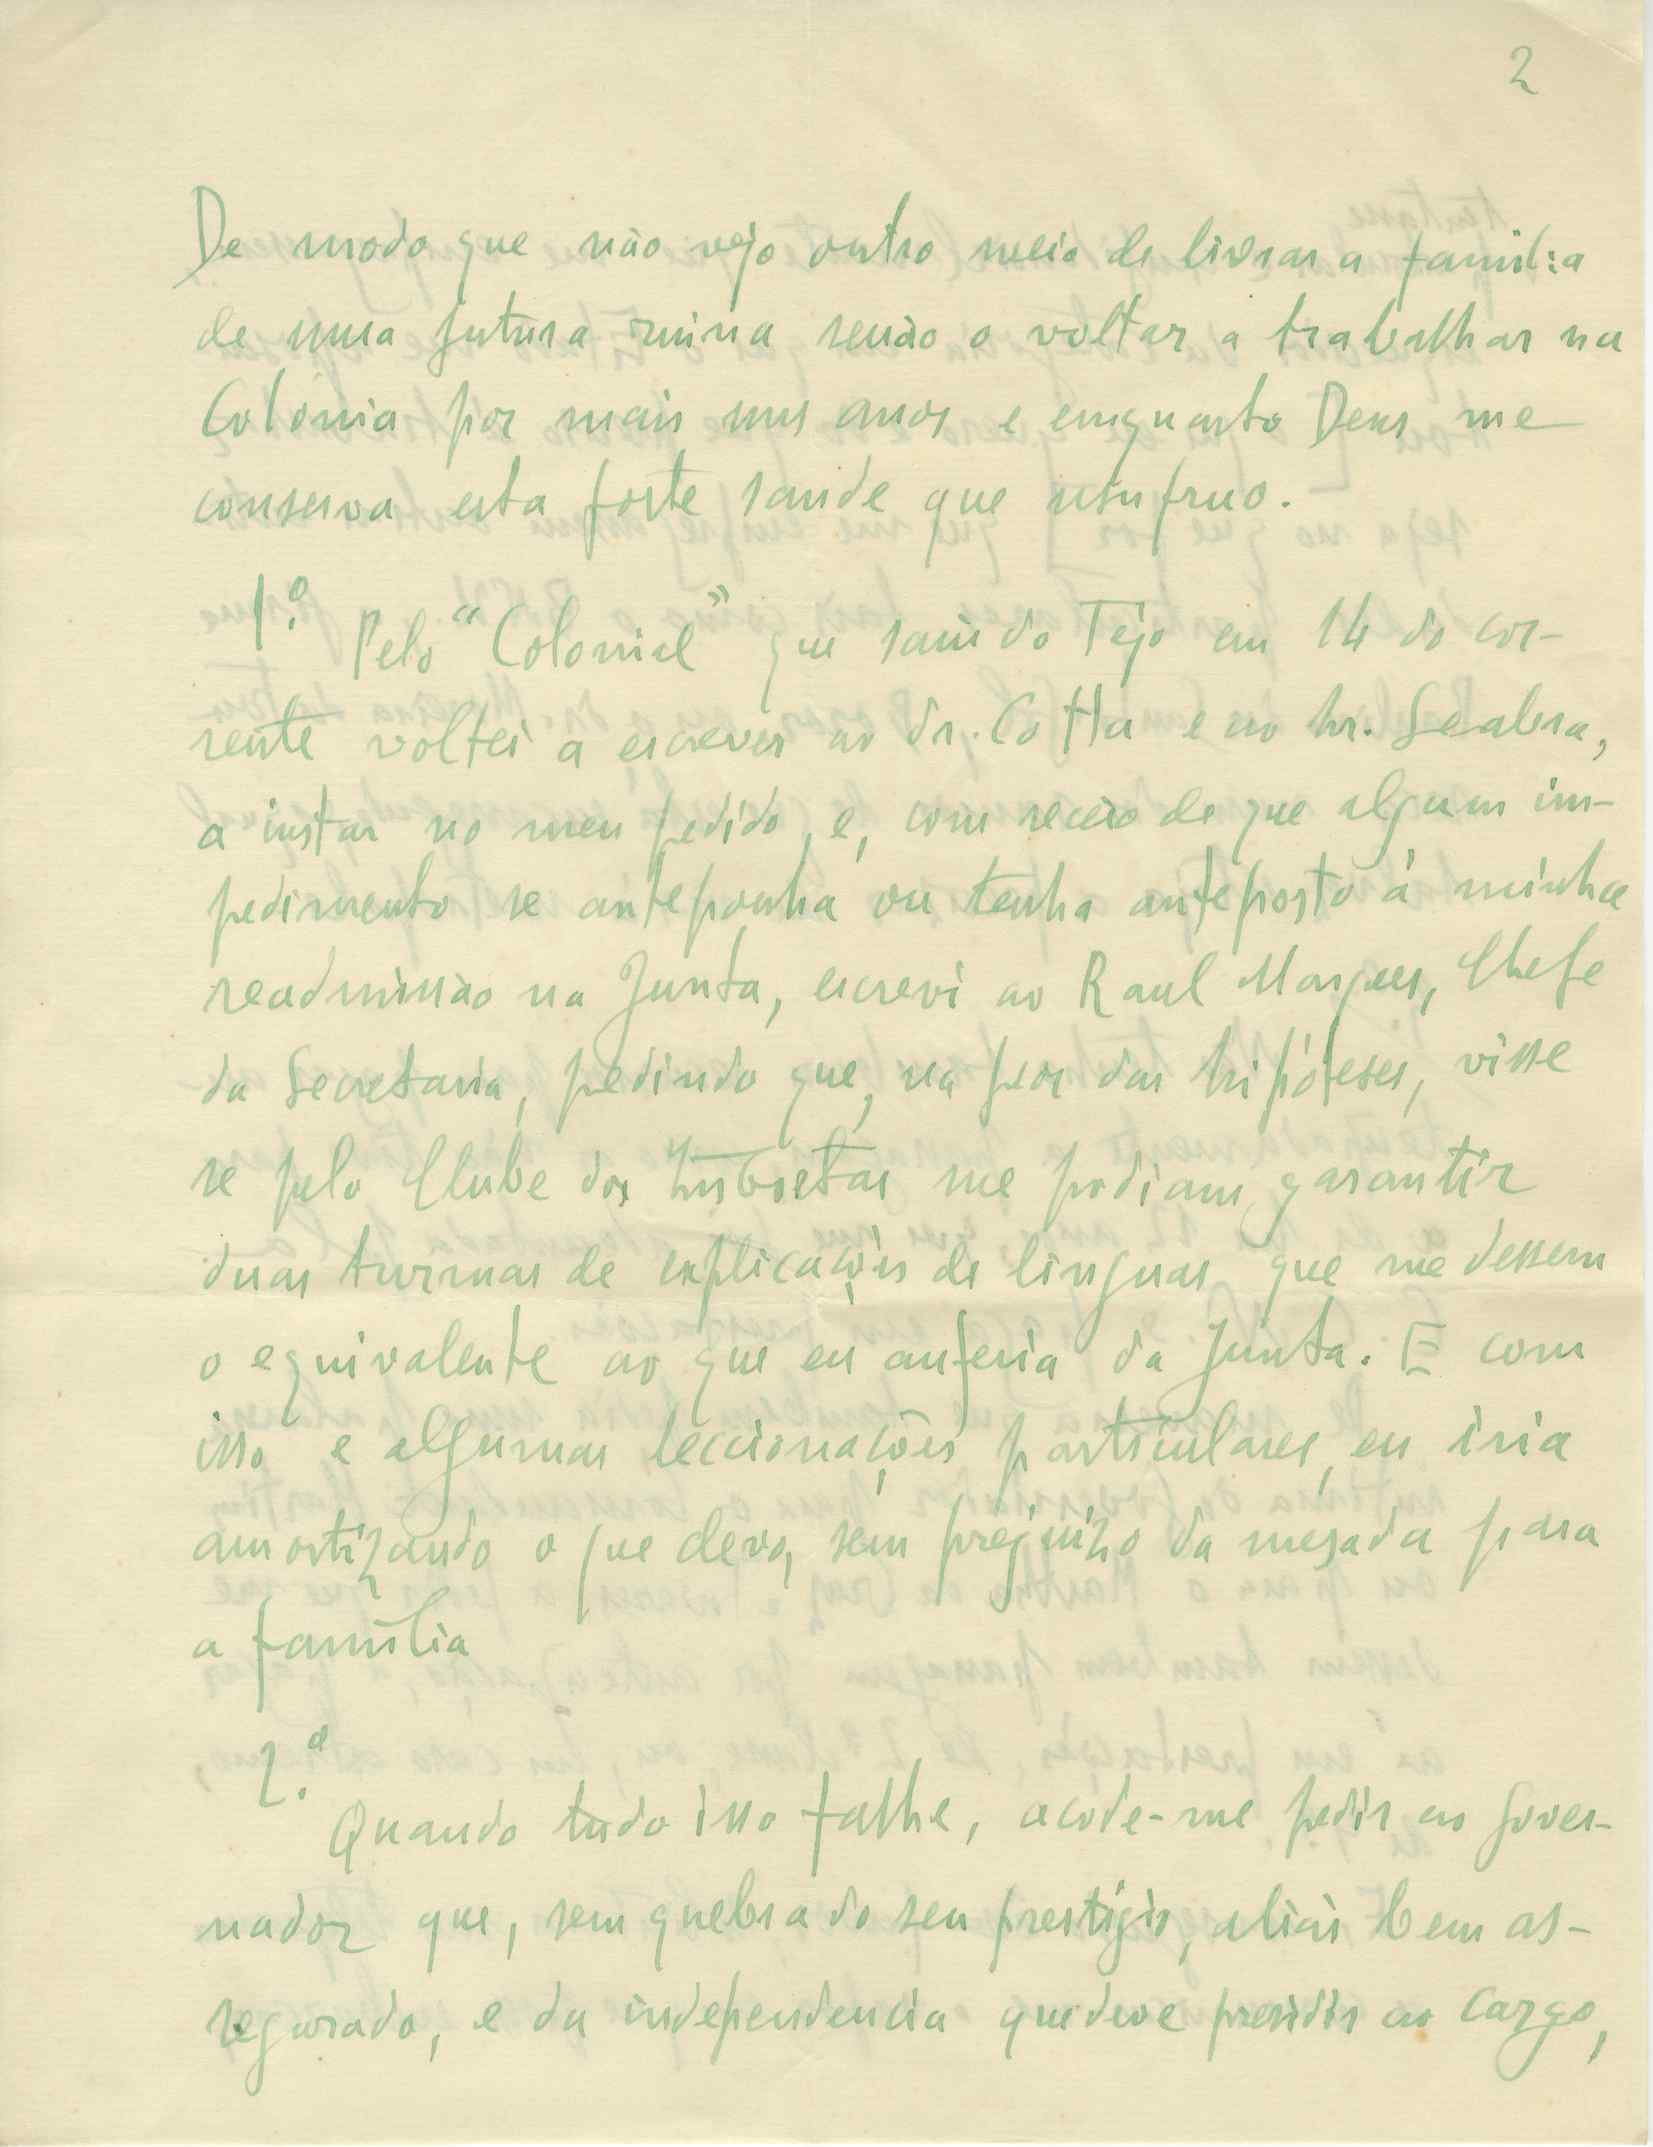 2
De modo que não vejo outro meio de livrar a familia
de uma futura ruina senão o voltar a trabalhar na
Colónia por mais uns anos e emquanto Deus me
conserva esta forte saude que usufruo.
1.º Pelo "Colonial" que saiu do Tejo em 14 do cor-
rente voltei a escrever ao dr. Cotta e ao sr. Seabra,
a instar no meu pedido, e, com receio de que algum im-
pedimento se anteponha ou tenha anteposto á minha
readmissão na Junta, escrevi ao Raul Marques, Chefe
da Secretaria, pedindo que, na peor das hipóteses, visse
se pelo Clube dos me podiam garantir
duas turmas de explicações de linguas que me dessem
o equivalente ao que eu auferia da Junta. E com
isso e algumas leccionações particulares, eu iria
amortizando o que devo, sem prejuizo da mesada para
a família
2.º
Quando tudo isso falhe, acode-me pedir ao gover-
nador que, sem quebra do seu prestígio, aliás bem as-
segurado, e da independencia que deve presidir ao cargo,